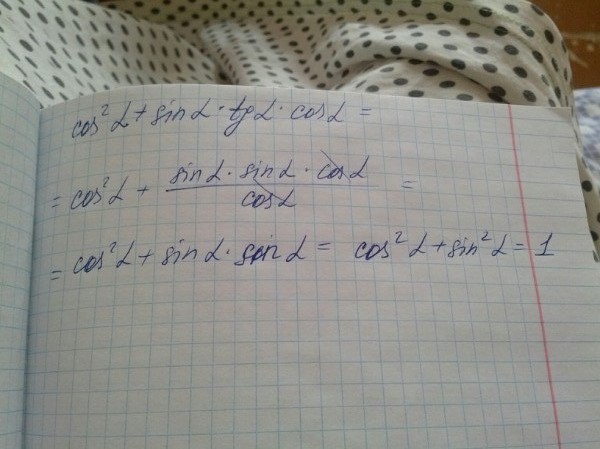 cos²α + sinα · tgα · cosα =
= cos²α + (sinα · sinα · cosα)/cosα =
= cos²α + sinα · sinα = cos²α + sin²α = 1